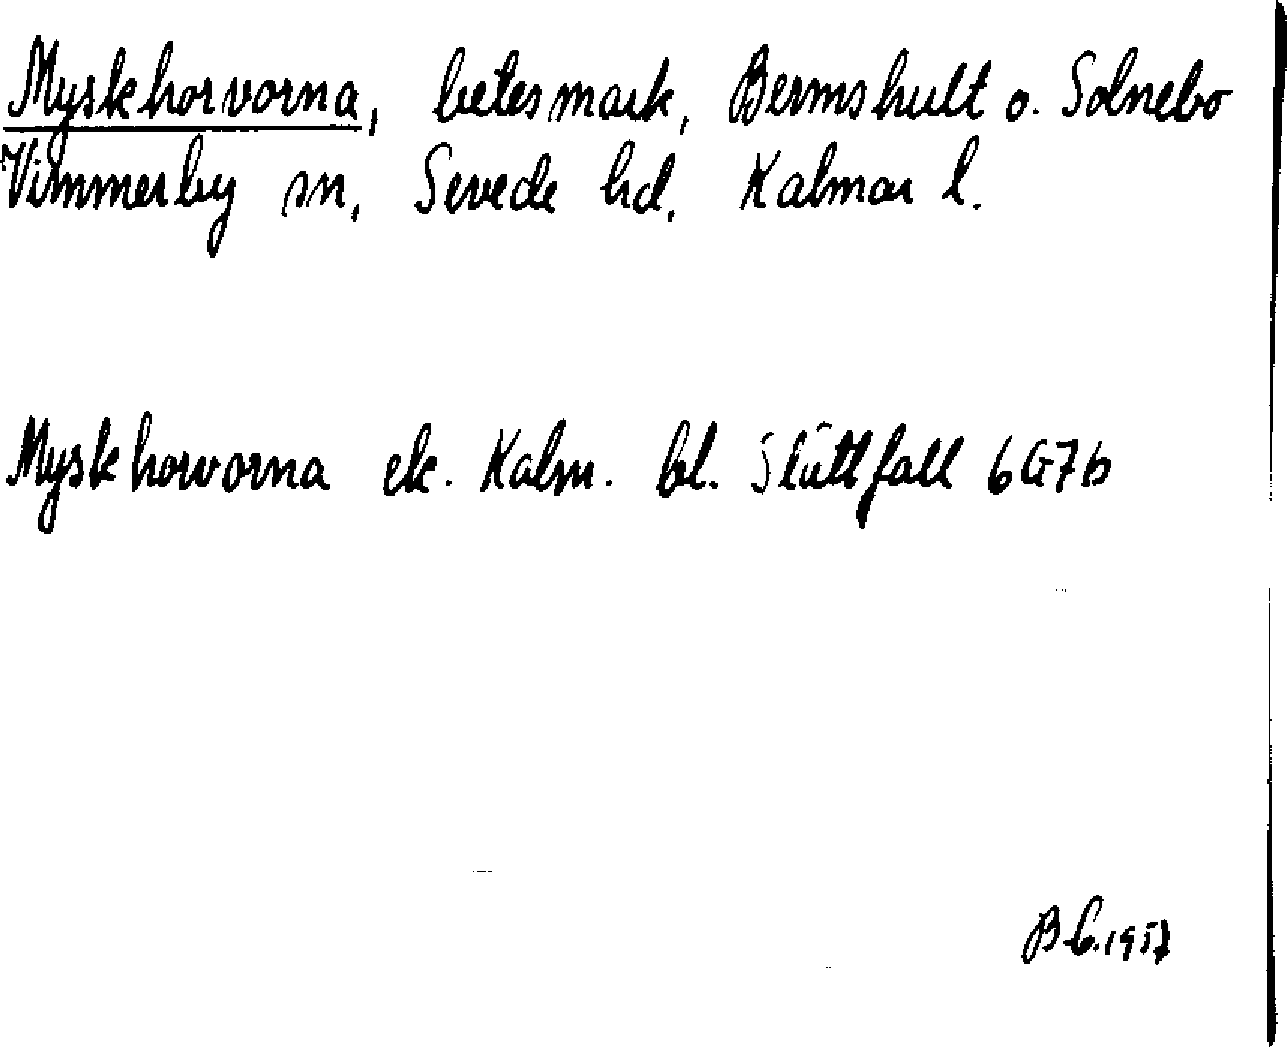 Myskhorvorna, betesmark, Bermshult o. Solnebo
Vimmerby sn, Sevede hd, Kalmar l.
Myskhorvorna ek. Kalm. bl. Slättfall 6G7b
B G. 1957